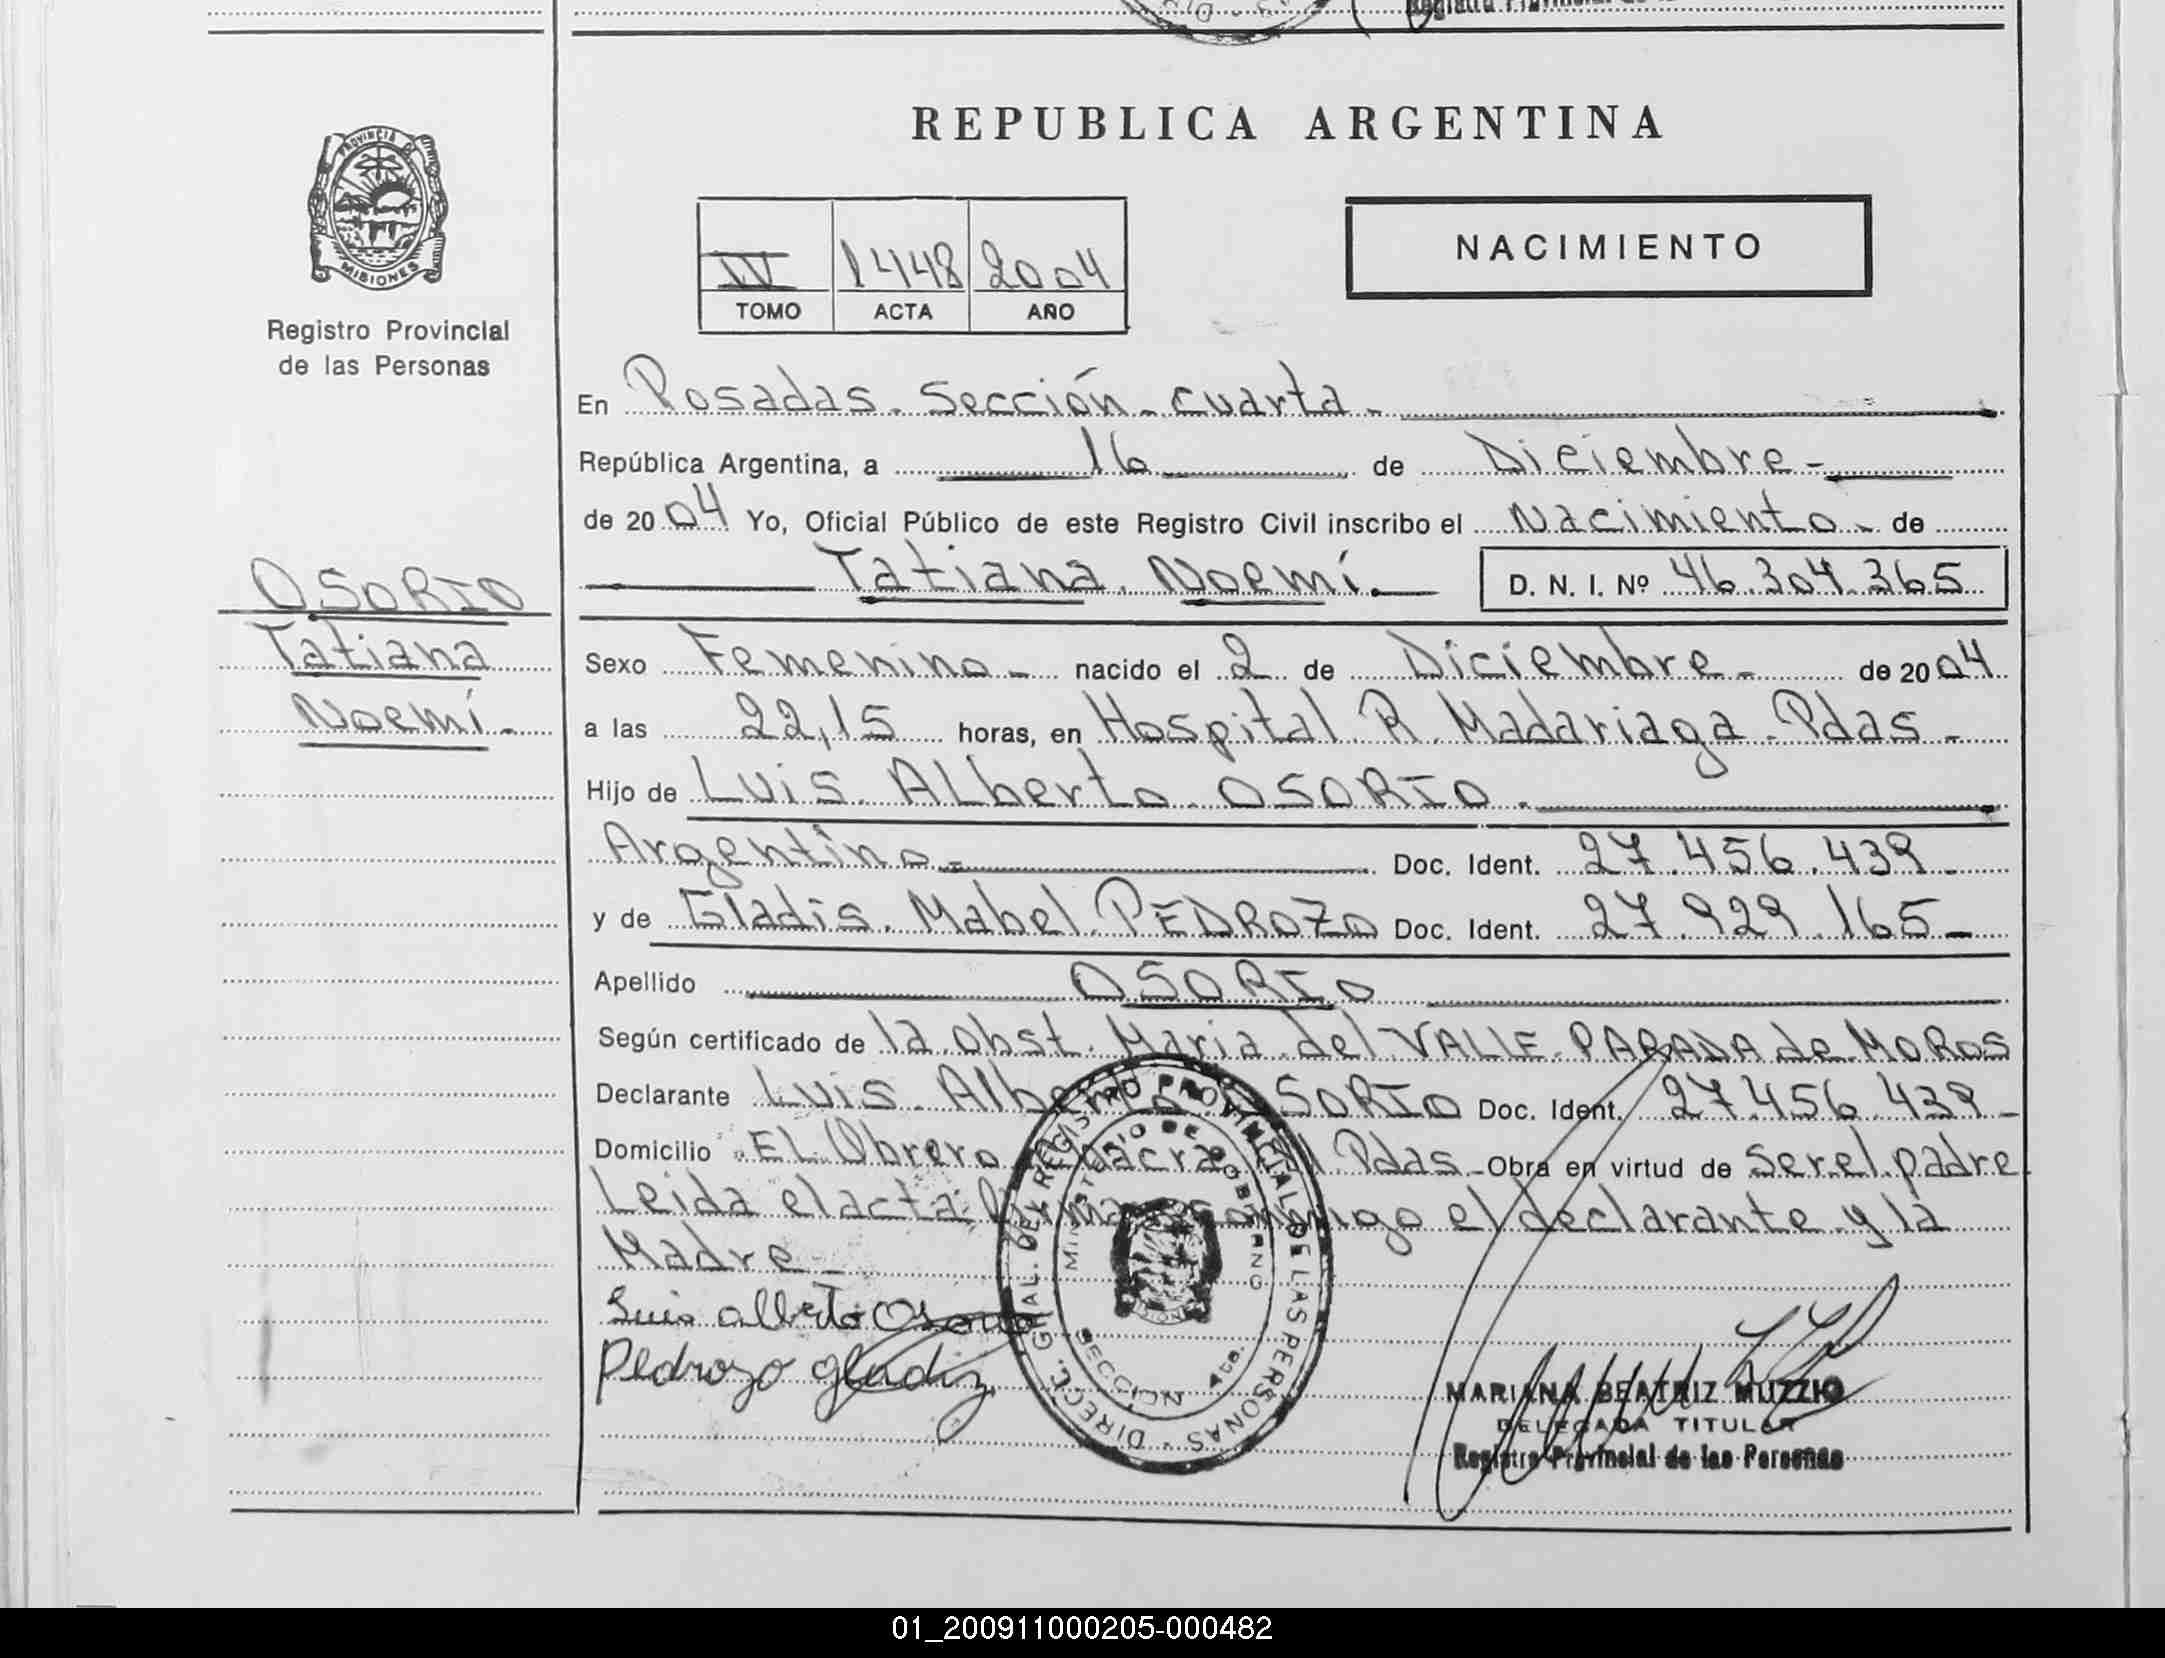 REPUBLICA ARGENTINA
PROVINCIA DE
MISIONES
Registro Provincial
de las Personas
IV 1448 2004
TOMO ACTA AÑO
NACIMIENTO
OSORIO
Tatiana
Noemí.-
En Posadas. Sección cuarta.-
República Argentina, a 16 de Diciembre-
de 2004 Yo, Oficial Público de este Registro Civil inscribo el Nacimiento- de
Tatiana Noemí.- D. N. I. Nº 46.304.365
Sexo Femenino- nacido el 2 de Diciembre- de 2004
a las 22,15 horas, en Hospital R. Madariaga-Pdas-
Hijo de Luis Alberto OSORIO.-
Argentino- Doc. Ident. 27.456.439-
y de Gladis Mabel PEDROZO Doc. Ident. 27.929.165-
Apellido OSORIO
Según certificado de la obst. Maria del VALLE PARADA de MOROS
Declarante Luis Alberto OSORIO Doc. Ident. 27.456.439-
Domicilio El Obrero Pdas- Obra en virtud de ser el padre
Leida el acta, firma conmigo el declarante y la
Madre-
Luis Alberto Osorio
Pedrozo Gladiz
DIRECC. GRAL. DEL REGISTRO PROVINCIAL DE LAS PERSONAS
MINISTERIO DE GOBIERNO
SECCION 4ta.
MARIANA BEATRIZ MUZZIO
DELEGADA TITULAR
Registro Provincial de las Personas
01_200911000205-000482